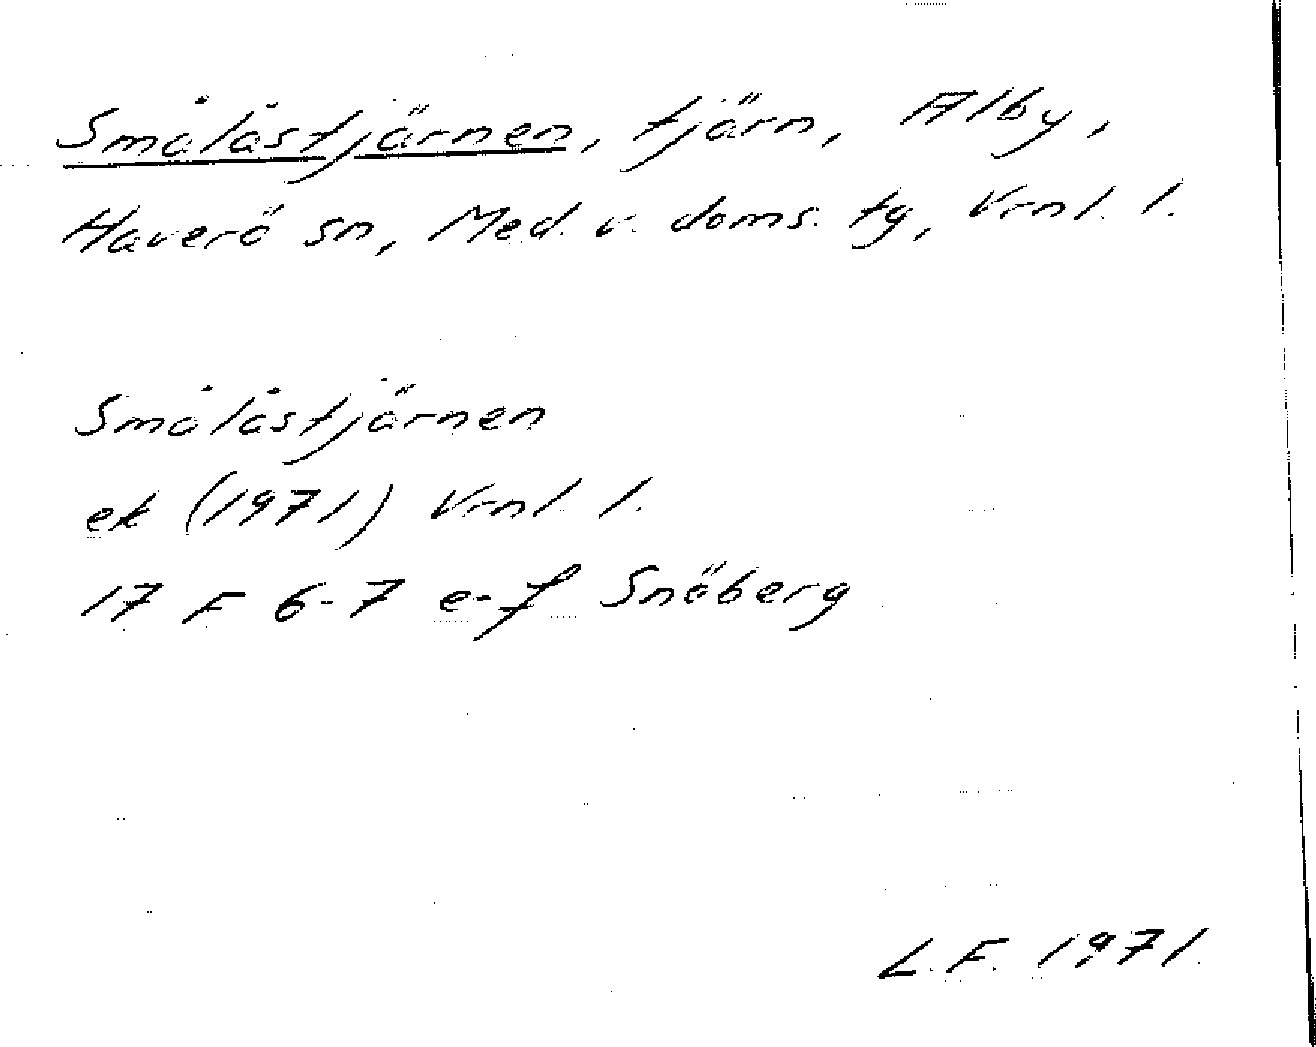 Smålåstjärnen, tjärn, Alby,
Haverö sn, Med. v. doms. tg, Vrnl. l.
Smålåstjärnen
ek (1971) Vrnl. l.
17 F 6-7 e-f Snöberg
L.F. 1971